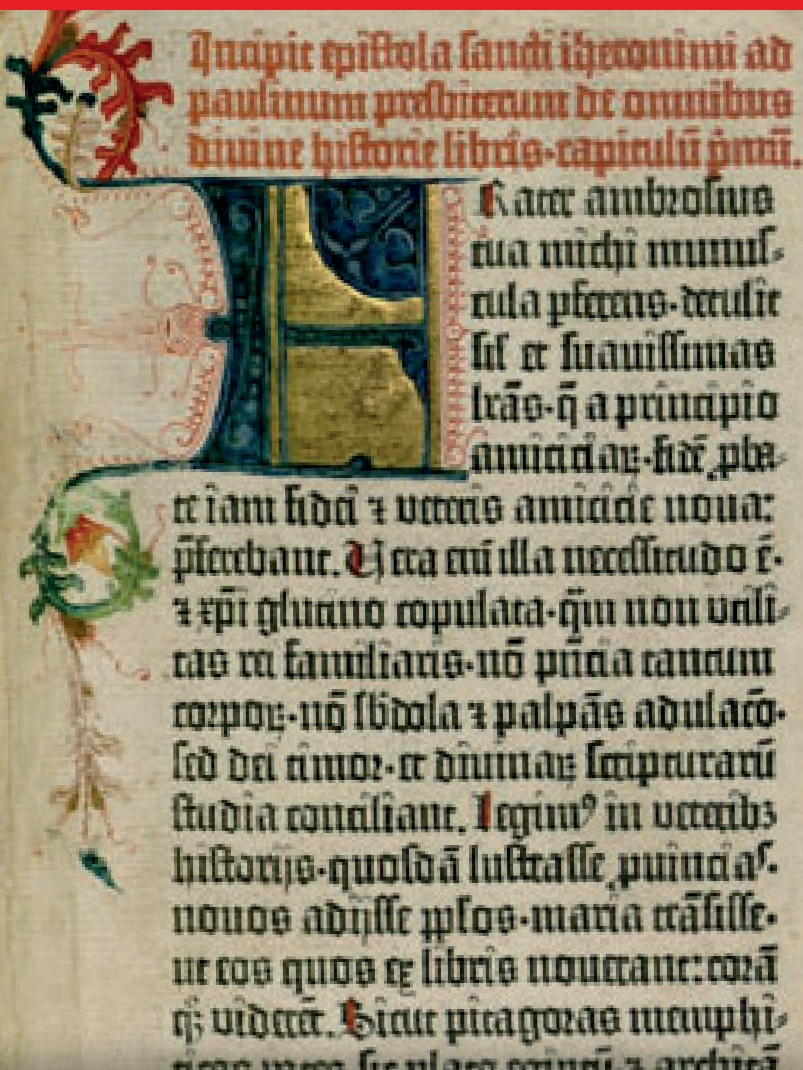 Incipit epistola sancti iheronimi ad
paulinum presbiterum de omnibus
divine historie libris·capitulū p̄mū.
FRater ambrosius
tua michi munus-
cula pferens·detulit
sil' et suavissimas
lrās·q̄ a principio
amiciciaꝝ·fidē ꝓba-
te iam fidei ⁊ veteris amicicie nova:
p̄ferebant. Vera eni̅ illa necessitudo ē·
⁊ xp̅i glutino copulata·q̄m non utili-
tas rei familiaris·nō p̄ncia tantum
corpoꝝ·nō sbdola ⁊ palpās adulacō·
sed dei timor·et divinaꝝ scripturarū
studia conciliant. Legimꝰ in veteribꝫ
historijs·quosdā lustrasse ꝓuincias·
novos adijsse ppl̕os·maria trāsisse·
ut eos quos ex libris noverant: corā
qꝫ viderēt. Sicut pitagoras memphi-